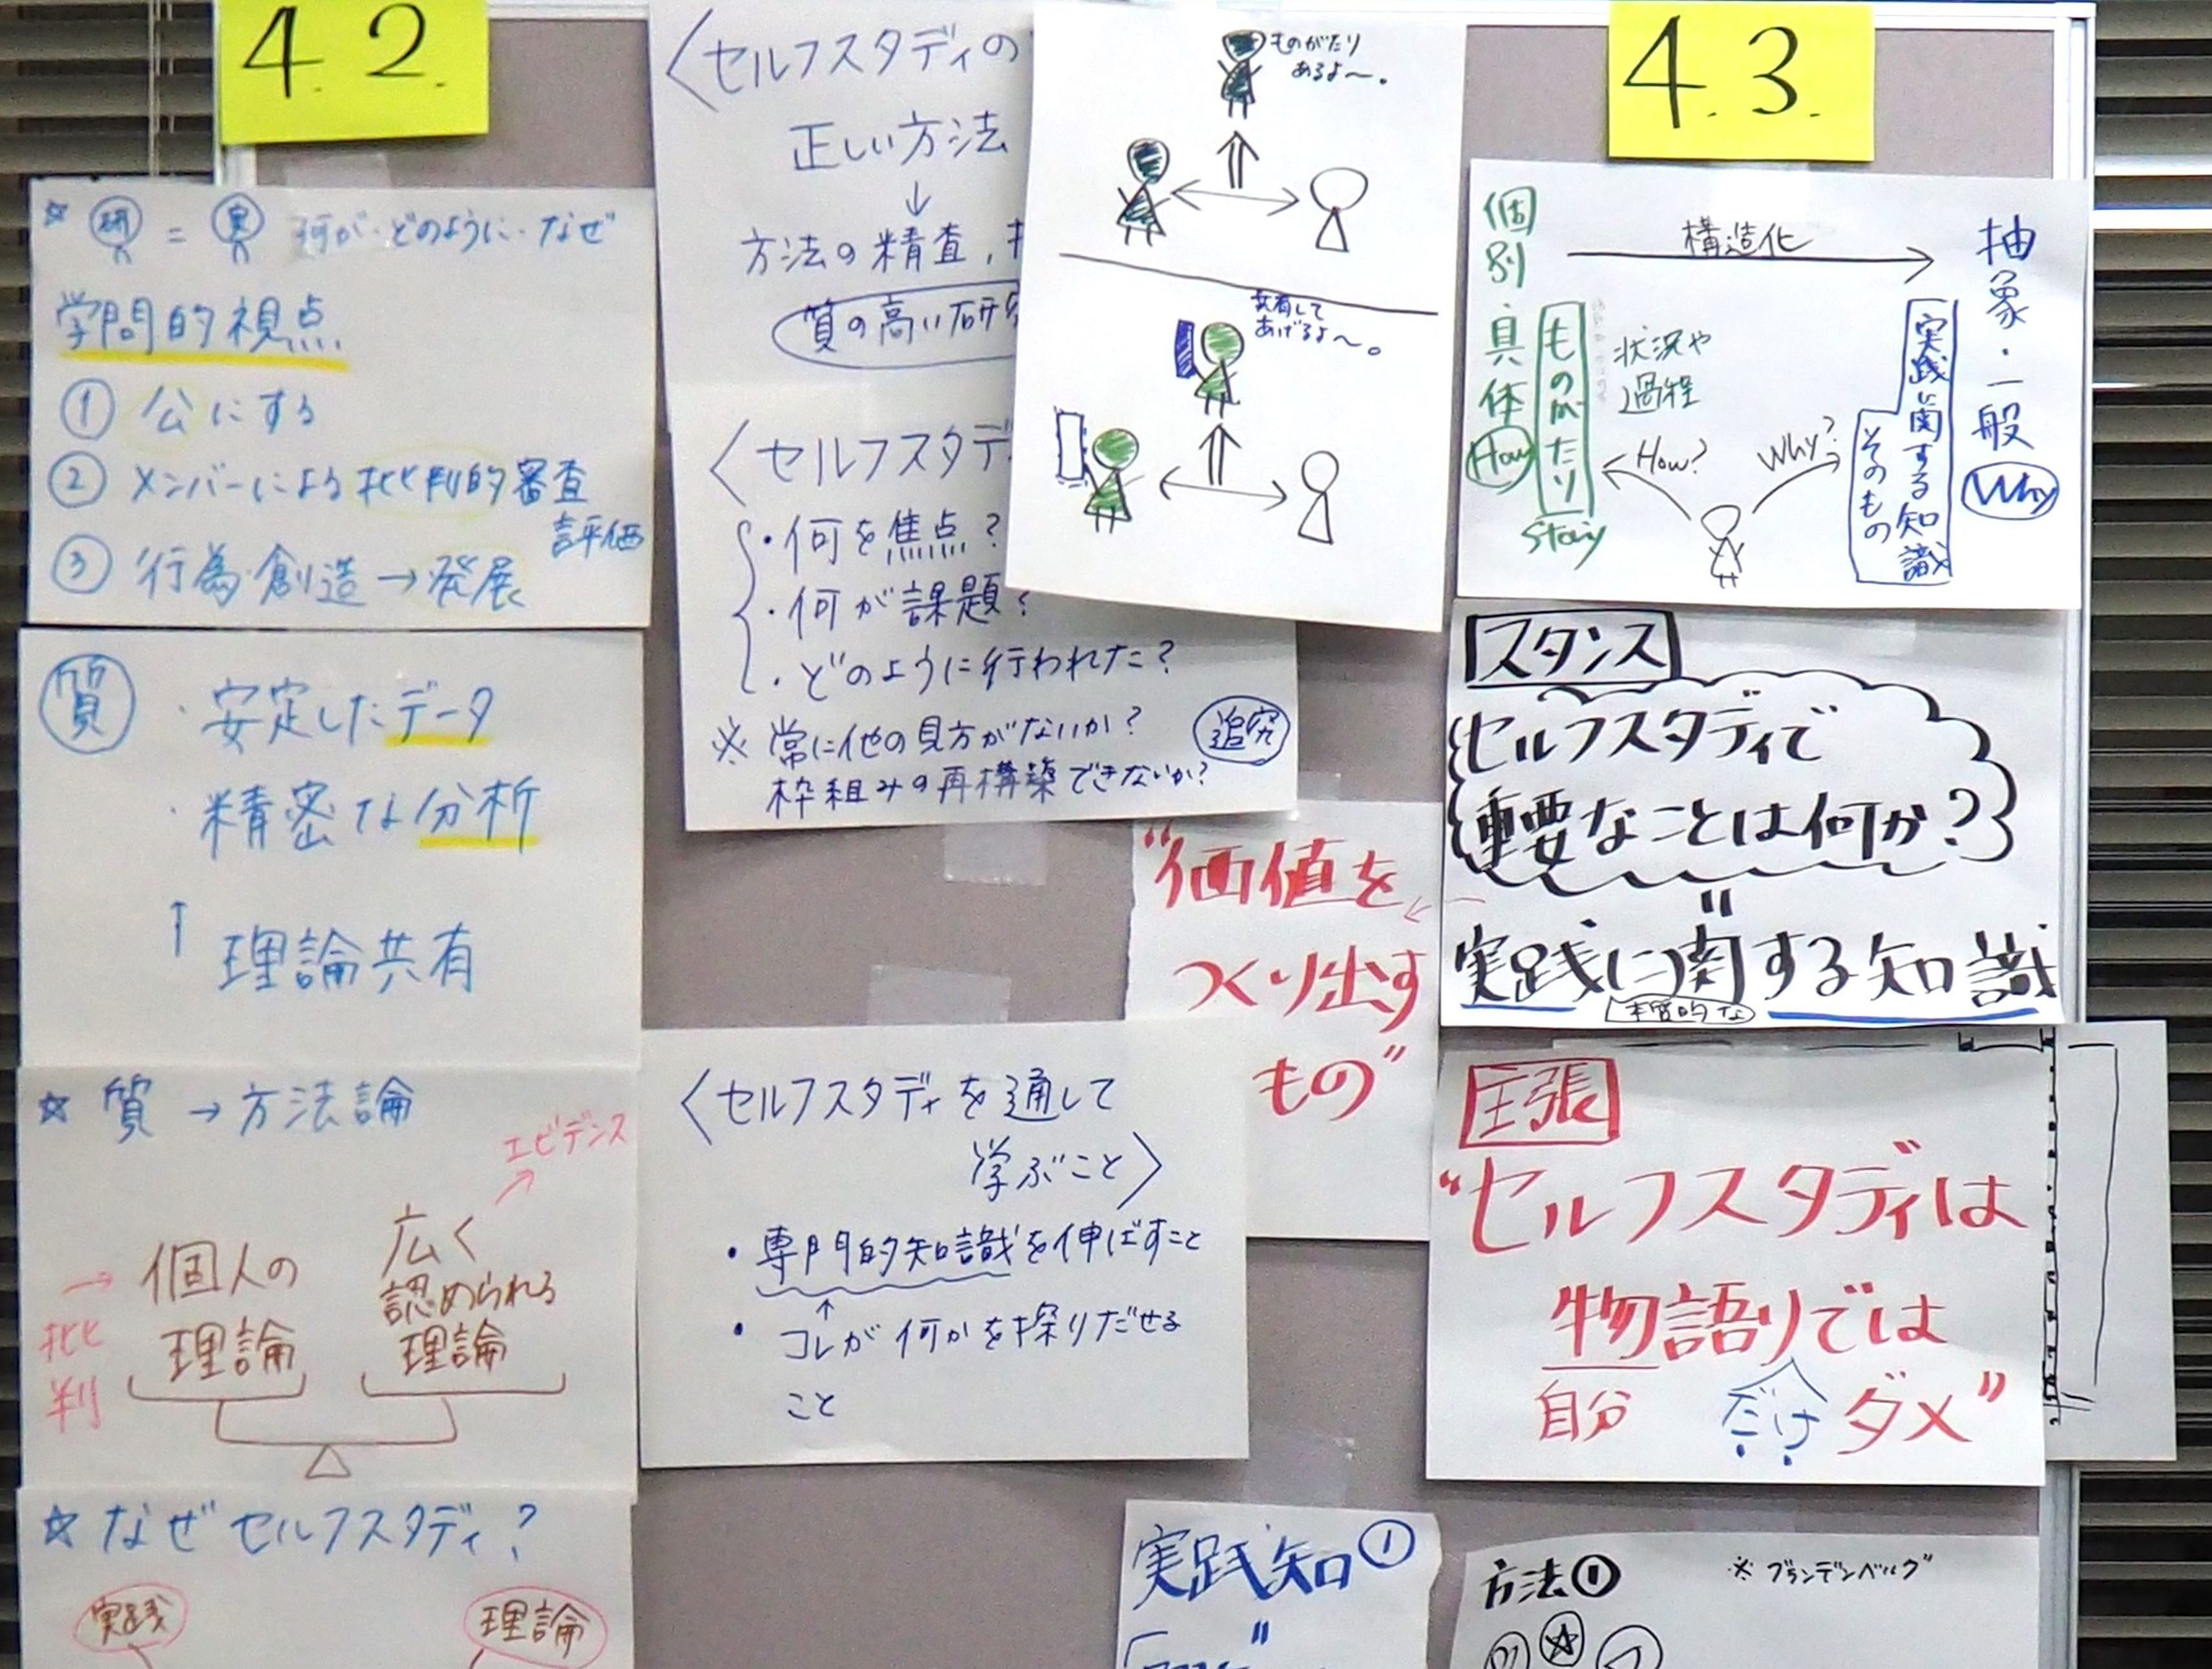 4.2.
☆ 研 = 実 何が・どのように・なぜ
学問的視点
① 公にする
② メンバーによる批判的審査
評価
③ 行為・創造→発展
質
・安定したデータ
・精密な分析
↑
理論共有
☆ 質 → 方法論
エビデンス
→ 個人の
理論
広く
認められる
理論
批
判
☆ なぜセルフスタディ?
実践
理論
〈セルフスタディの
正しい方法
↓
方法の精査,
質の高い研究
〈セルフスタデ
・何を焦点?
・何が課題?
・どのように行われた?
※ 常に他の見方がないか?
枠組みの再構築できないか?
追究
ものがたり
あるよ〜。
共有して
あげるよ〜。
“価値を
つくり出す
もの”
〈セルフスタディを通して
学ぶこと〉
・専門的知識を伸ばすこと
↑
・コレが何かを探りだせる
こと
実践知①
"
4.3.
個別・具体
How
ものがたり
Story
構造化
状況や
過程
How?
Why?
抽象・一般
Why
実践に関する知識
そのもの
スタンス
セルフスタディで
重要なことは何か?
"
実践に関する知識
本質的な
主張
“セルフスタディは
物語りでは
自分 だけ ダメ”
方法①
※ ブランデンベルグ